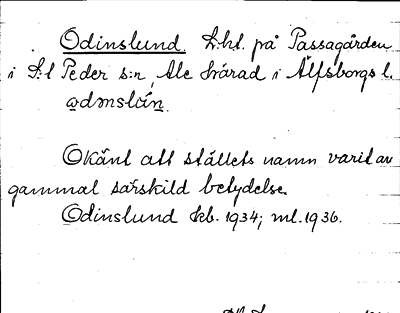 Odinslund. L:hl. på Passagården
i S:t Peder s:n, Ale härad i Älfsborgs l.
Okänt att ställets namn varit av
gammal särskild betydelse.
Odinslund kb. 1934; ml. 1936.